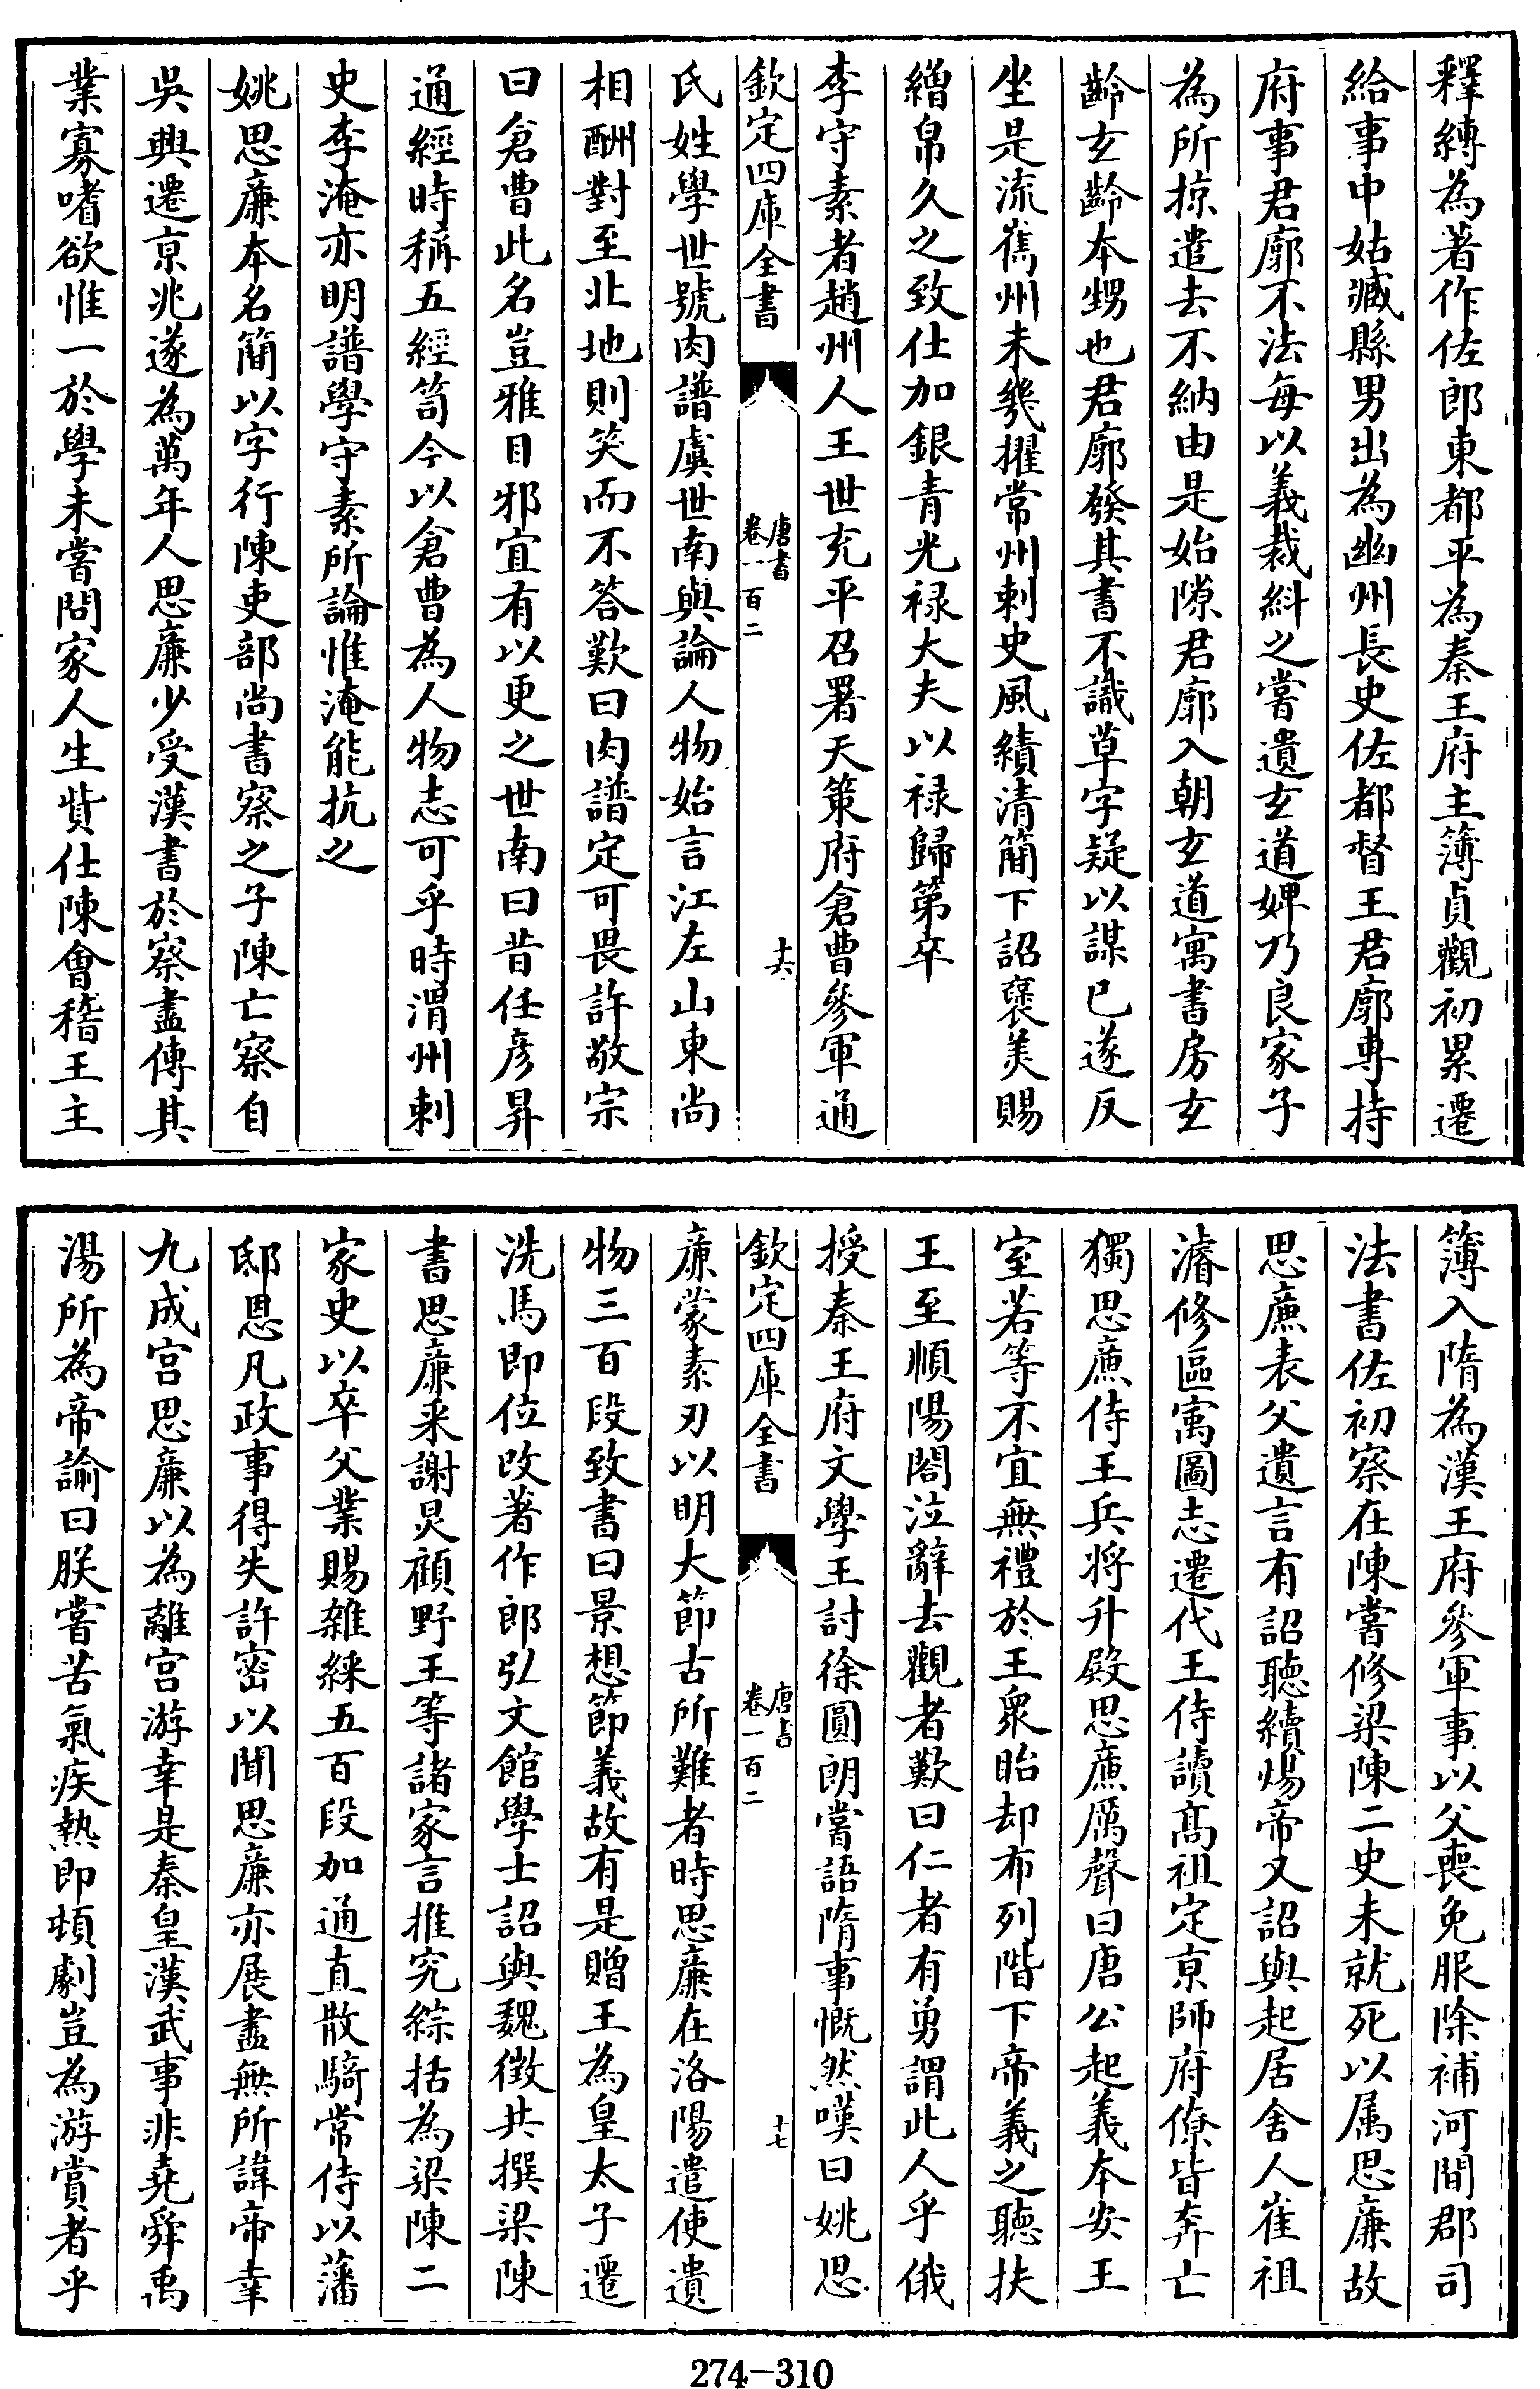 釋縛為著作佐郎東都平為秦王府主簿貞觀初累遷
給事中姑臧縣男出為幽州長史佐都督王君廓專持
府事君廓不法每以義裁糾之嘗遺玄道婢乃良家子
為所掠遣去不納由是始隙君廓入朝玄道寓書房玄
齡玄齡本甥也君廓發其書不識草字疑以謀己遂反
坐是流嶲州未幾擢常州刺史風績清簡下詔褒美賜
繒帛久之致仕加銀青光禄大夫以禄歸第卒
李守素者趙州人王世充平召署天策府倉曹參軍通
欽定四庫全書
唐書
卷一百二
十六
氏姓學世號肉譜虞世南與論人物始言江左山東尚
相酬對至北地則笑而不答歎曰肉譜定可畏許敬宗
曰倉曹此名豈雅目邪宜有以更之世南曰昔任彦昇
通經時稱五經笥今以倉曹為人物志可乎時渭州刺
史李淹亦明譜學守素所論惟淹能抗之
姚思廉本名簡以字行陳吏部尚書察之子陳亡察自
吳興遷京兆遂為萬年人思廉少受漢書於察盡傳其
業寡嗜欲惟一於學未嘗問家人生貲仕陳會稽王主
簿入隋為漢王府參軍事以父喪免服除補河間郡司
法書佐初察在陳嘗修梁陳二史未就死以属思廉故
思廉表父遺言有詔聽續煬帝又詔與起居舍人崔祖
濬修區㝢圖志遷代王侍讀髙祖定京師府僚皆奔亡
獨思廉侍王兵將升殿思廉厲聲曰唐公起義本安王
室若等不宜無禮於王衆眙却布列階下帝義之聽扶
王至順陽閤泣辭去觀者歎曰仁者有勇謂此人乎俄
授秦王府文學王討徐圓朗嘗語隋事慨然嘆曰姚思
欽定四庫全書
唐書
卷一百二
十七
廉蒙素刃以明大節古所難者時思廉在洛陽遣使遺
物三百段致書曰景想節義故有是贈王為皇太子遷
洗馬即位改著作郎弘文館學士詔與魏徵共撰梁陳
書思廉采謝炅顧野王等諸家言推究綜括為梁陳二
家史以卒父業賜雜綵五百段加通直散騎常侍以藩
邸恩凡政事得失許密以聞思廉亦展盡無所諱帝幸
九成宫思廉以為離宫游幸是秦皇漢武事非堯舜禹
湯所為帝諭曰朕嘗苦氣疾熱即頓劇豈為游賞者乎
274-310